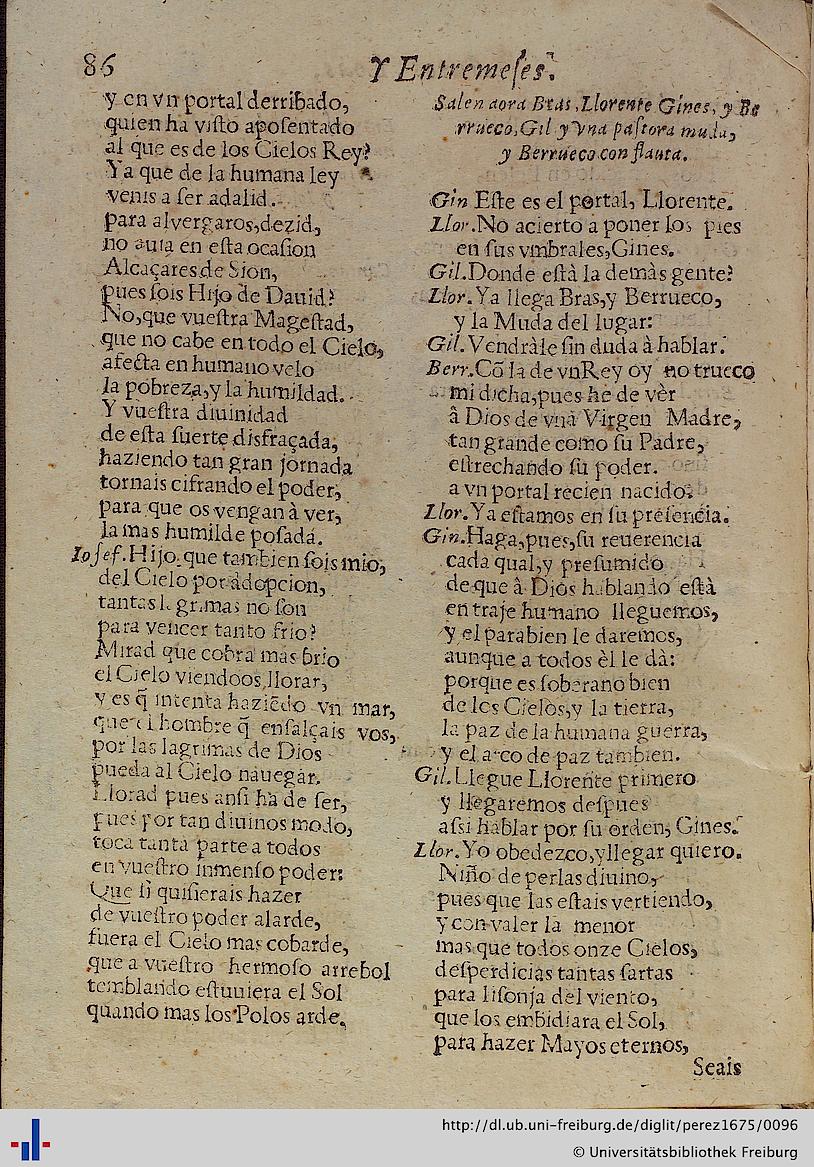 86
Y Entremeſes.
y en vn portal derribado,
quien ha viſto apoſentado
al que es de los Cielos Rey?
Ya que de la humana ley
venis a ſer adalid.
para alvergaros, dezid,
no auia en eſta ocaſion
Alcaçares de Sion,
pues ſois Hijo de Dauid?
No, que vueſtra Mageſtad,
que no cabe en todo el Cielo,
afecta en humano velo
la pobreza, y la humildad.
Y vueſtra diuinidad
de eſta ſuerte disfraçada,
haziendo tan gran jornada
tornais cifrando el poder,
para que os vengan à ver,
la mas humilde poſada.
Ioſef. Hijo, que tambien ſois mio,
del Cielo por adopcion,
tantas lagrimas no ſon
para vencer tanto frio?
Mirad que cobra mas brio
el Cielo viendoos llorar,
y es q̃ intenta haziẽdo vn mar,
que el hombre q̃ enſalçais vos,
por las lagrimas de Dios
pueda al Cielo nauegar.
Llorad pues anſi ha de ſer,
pues por tan diuinos modo,
toca tanta parte a todos
en vueſtro inmenſo poder:
Que ſi quiſierais hazer
de vueſtro poder alarde,
fuera el Cielo mas cobarde,
que a vueſtro hermoſo arrebol
temblando eſtuuiera el Sol
quando mas los Polos arde.
Salen aora Bras, Llorente Gines, y Be
rrueco, Gil y vna paſtora muda,
y Berrueco con flauta.
Gin Eſte es el portal, Llorente.
Llor. No acierto a poner los pies
en ſus vmbrales, Gines.
Gil. Donde eſtà la demàs gente?
Llor. Ya llega Bras, y Berrueco,
y la Muda del lugar:
Gil. Vendràle ſin duda à hablar.
Berr. Cõ la de vn Rey oy no trueco
mi dicha, pues he de vèr
â Dios de vna Virgen Madre,
tan grande como ſu Padre,
eſtrechando ſu poder.
a vn portal recien nacido.
Llor. Ya eſtamos en ſu preſencia.
Gin. Haga, pues, ſu reuerencia
cada qual, y preſumido
de que â Dios hablando eſtà
en traje humano lleguemos,
y el parabien le daremos,
aunque a todos èl le dà:
porque es ſoberano bien
de los Cielos, y la tierra,
la paz de la humana guerra,
y el arco de paz tambien.
Gil. Llegue Llorente primero
y llegaremos deſpues
aſsi hablar por ſu orden, Gines.
Llor. Yo obedezco, y llegar quiero.
Niño de perlas diuino,
pues que las eſtais vertiendo,
y con valer la menor
mas que todos onze Cielos,
deſperdicias tantas ſartas
para liſonja del viento,
que los embidiara el Sol,
para hazer Mayos eternos,
Seais
http://dl.ub.uni-freiburg.de/diglit/perez1675/0096
© Universitätsbibliothek Freiburg